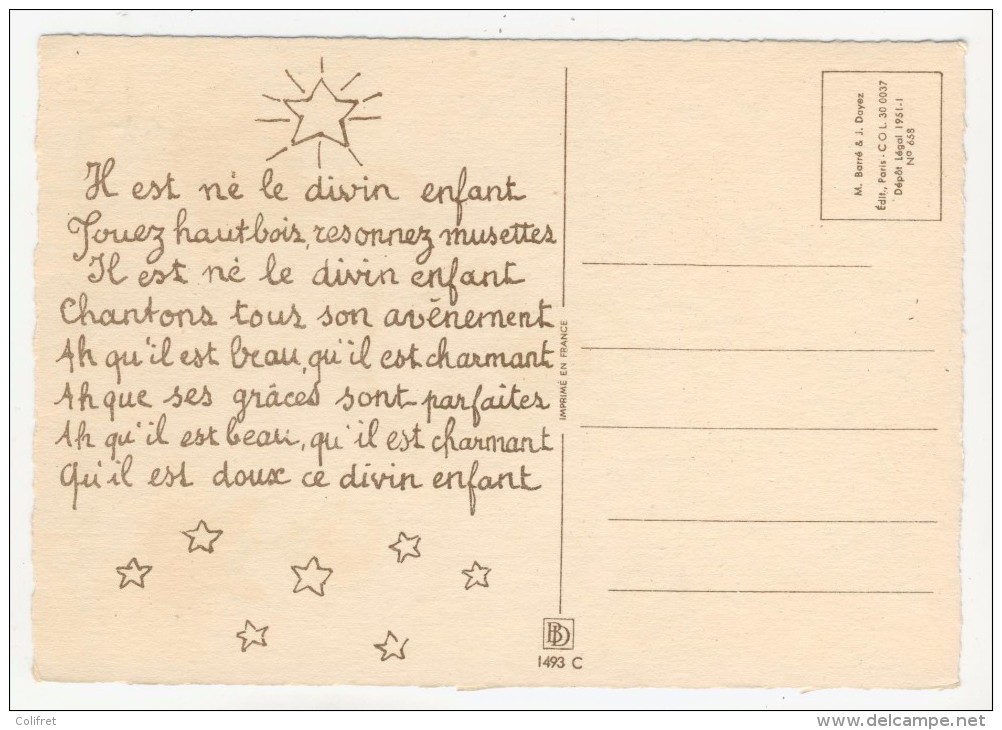 Il est né le divin enfant
Jouez hautbois, resonnez musettes
Il est né le divin enfant
Chantons tous son avènement
Ah qu'il est beau, qu'il est charmant
Ah que ses grâces sont parfaites
Ah qu'il est beau, qu'il est charmant
Qu'il est doux ce divin enfant
IMPRIMÉ EN FRANCE
M. Barré & J. Dayez
Édit., Paris - C O L. 30 0037
Dépôt Légal 1951-1
N° 658
BD
1493 C
Colifret
www.delcampe.net